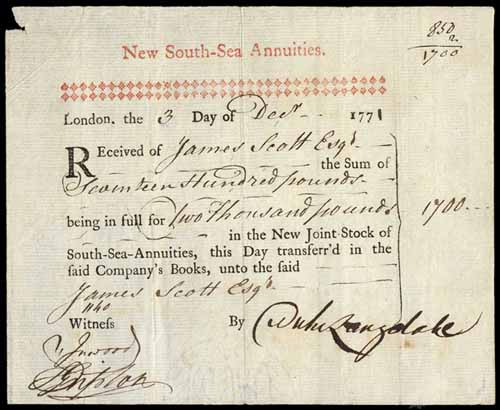 850
2
1700
New South-Sea Annuities.
London, the 3 Day of Decr 1771
Received of James Scott Esqr
the Sum of
Seventeen Hundred pounds
being in full for Two Thousand pounds 1700
in the New Joint-Stock of
South-Sea-Annuities, this Day transferr'd in the
said Company's Books, unto the said
James Scott Esqr
Witness By